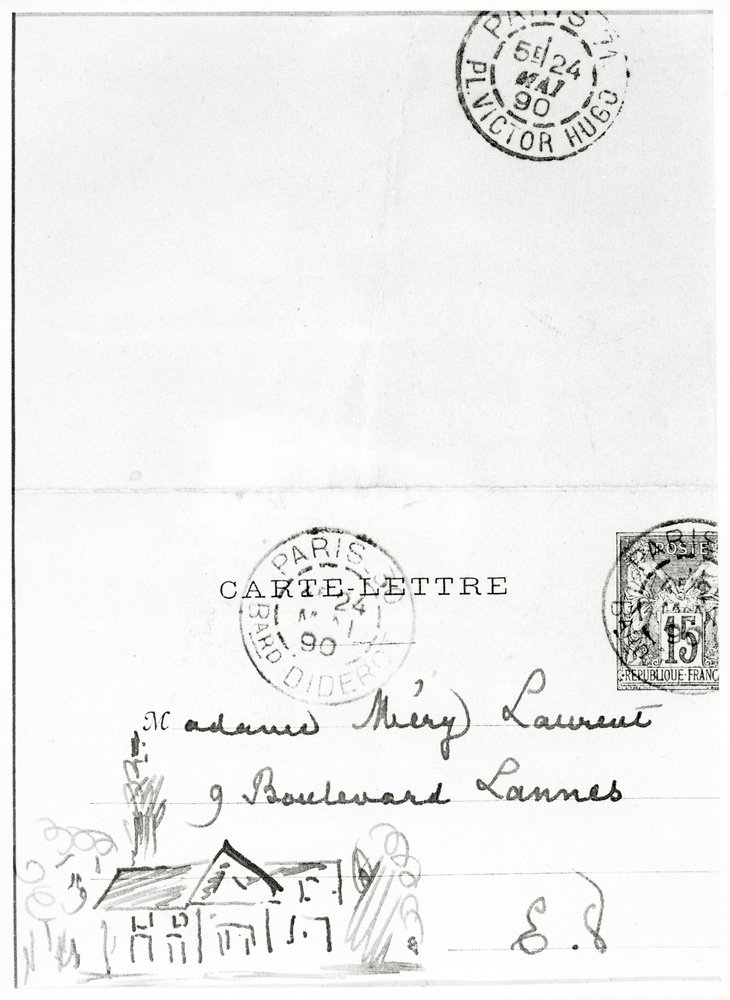 PARIS 71
5E 24
MAI
90
PL. VICTOR HUGO
PARIS-30
CARTE-LETTRE
24
90
BARD DIDEROT
POSTE
15
REPUBLIQUE FRANC
Madame Méry Laurent
9 Boulevard Lannes
E.V